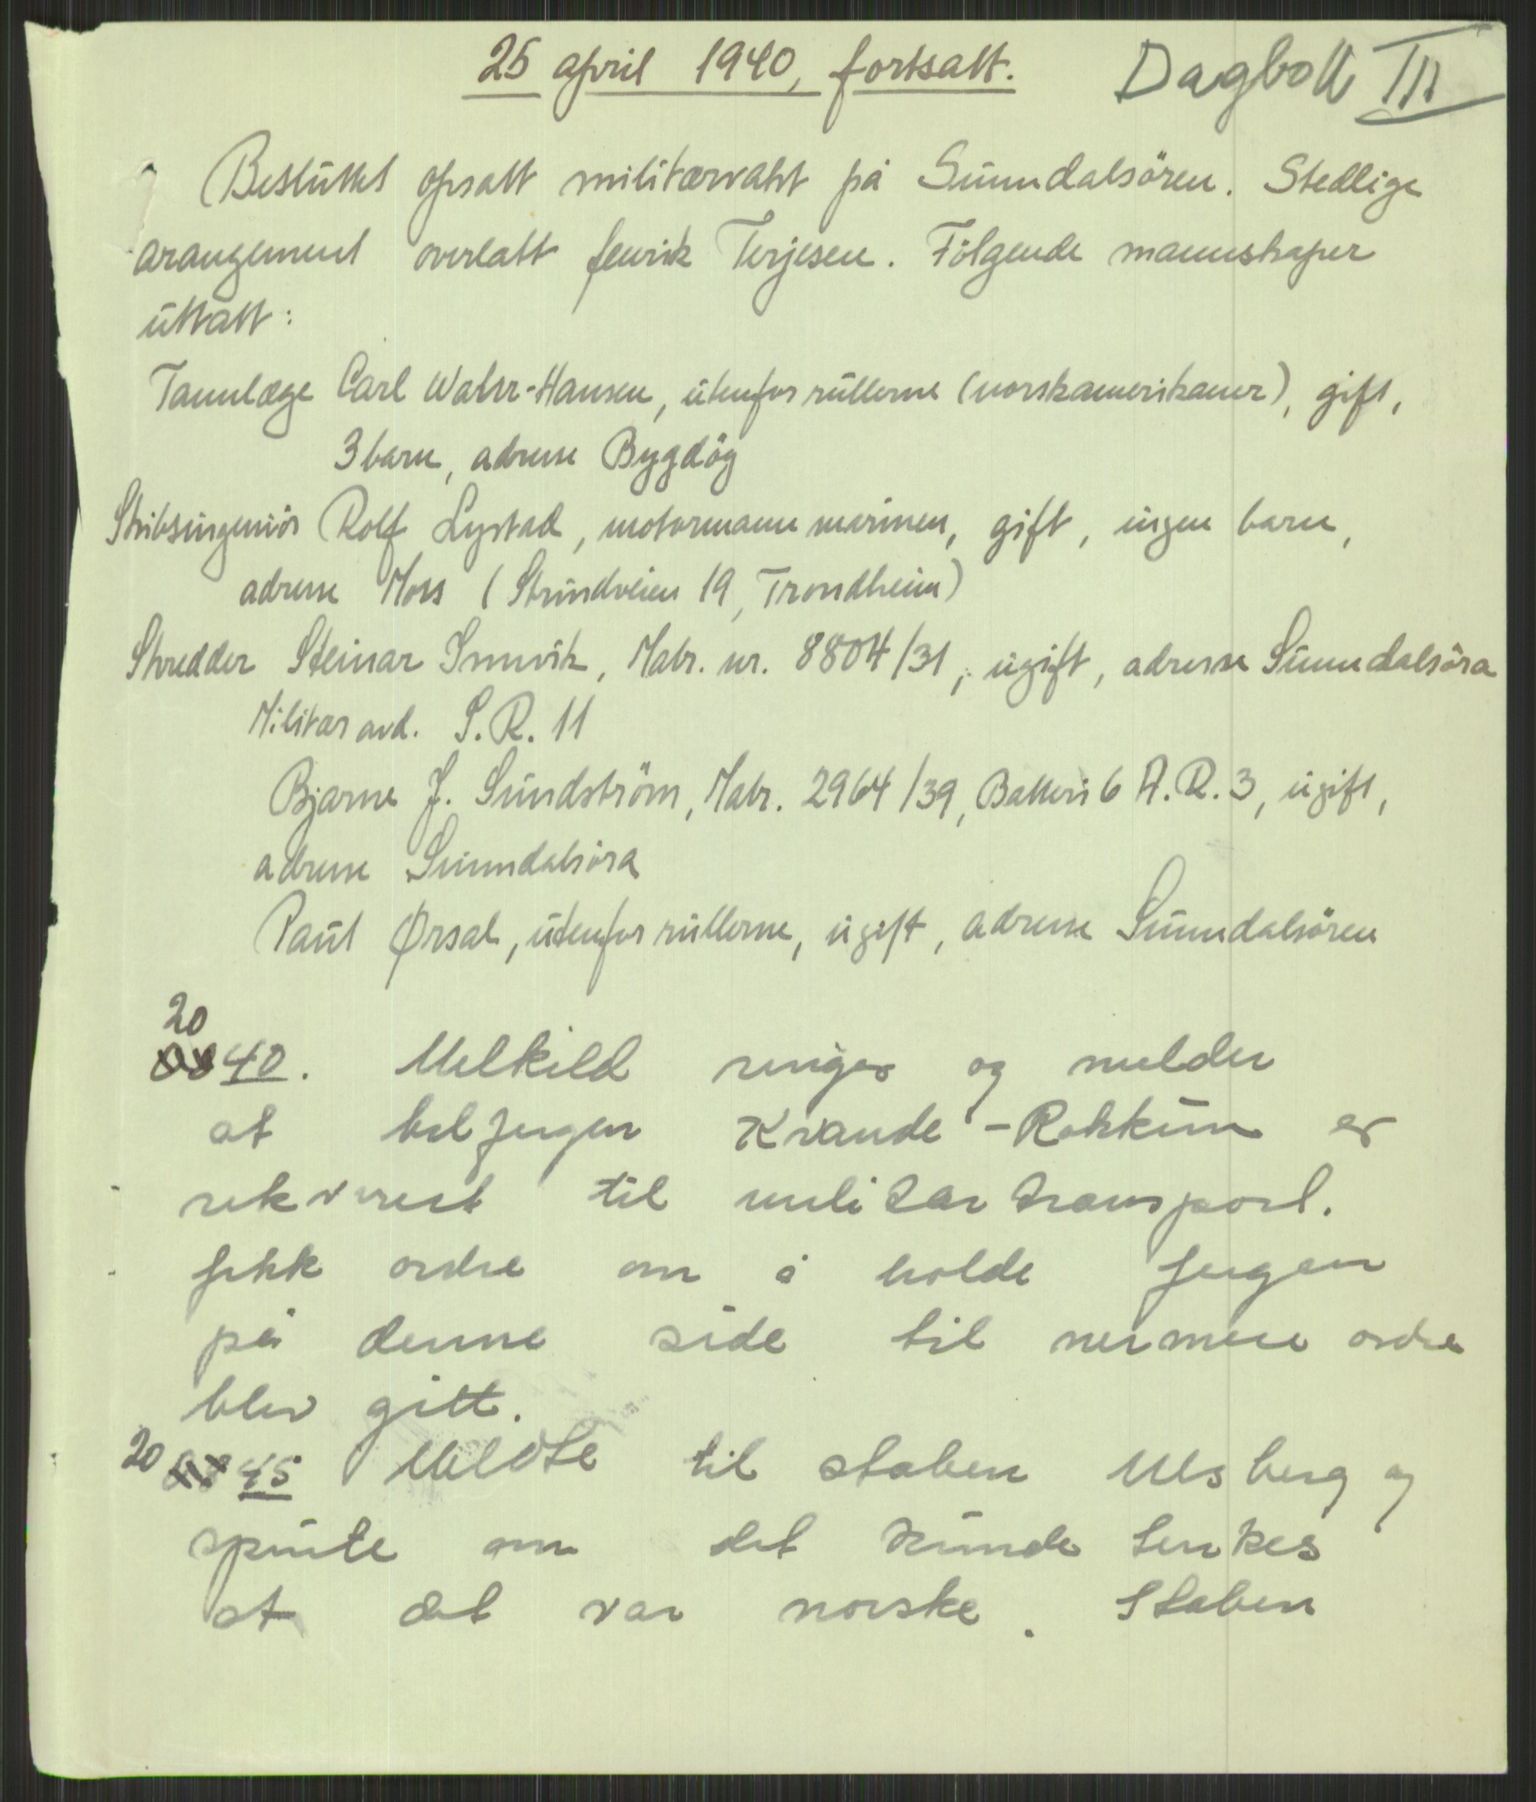 25 april 1940, fortsatt.
Dagbok III
Besluttet opsatt militærvakt på Sunndalsören. Stedlige
arangement overlatt fenrik Terjesen. Fölgende mannskaper
uttatt:
Tannlæge Carl Waler-Hansen, utenfor rullerne (norskamerikaner), gift,
3 barn, adresse Bygdög
Skibsingeniör Rolf Lystad, motormann marinen, gift, ingen barn,
adresse Moss (Strindveien 19, Trondheim)
Skredder Steinar Smevik, Matr. nr. 8804/31, ugift, adresse Sunndalsöra
Militær avd. I.R. 11
Bjarne J. Sundström, Matr. 2964/39, Batteri 6 A.R. 3, ugift,
adresse Sunndalsöra
Paul Ørsal, utenfor rullerne, ugift, adresse Sunndalsören
20
40. Melkild ringer og melder
at bilfergen Kvande - Rokkum er
rekvirert til militærtransport.
fikk ordre om å holde fergen
på denne side til nermere ordre
blev gitt.
20 45 Meldte til staben Ulsberg og
spurte om det kunde tenkes
at det var norske. Staben